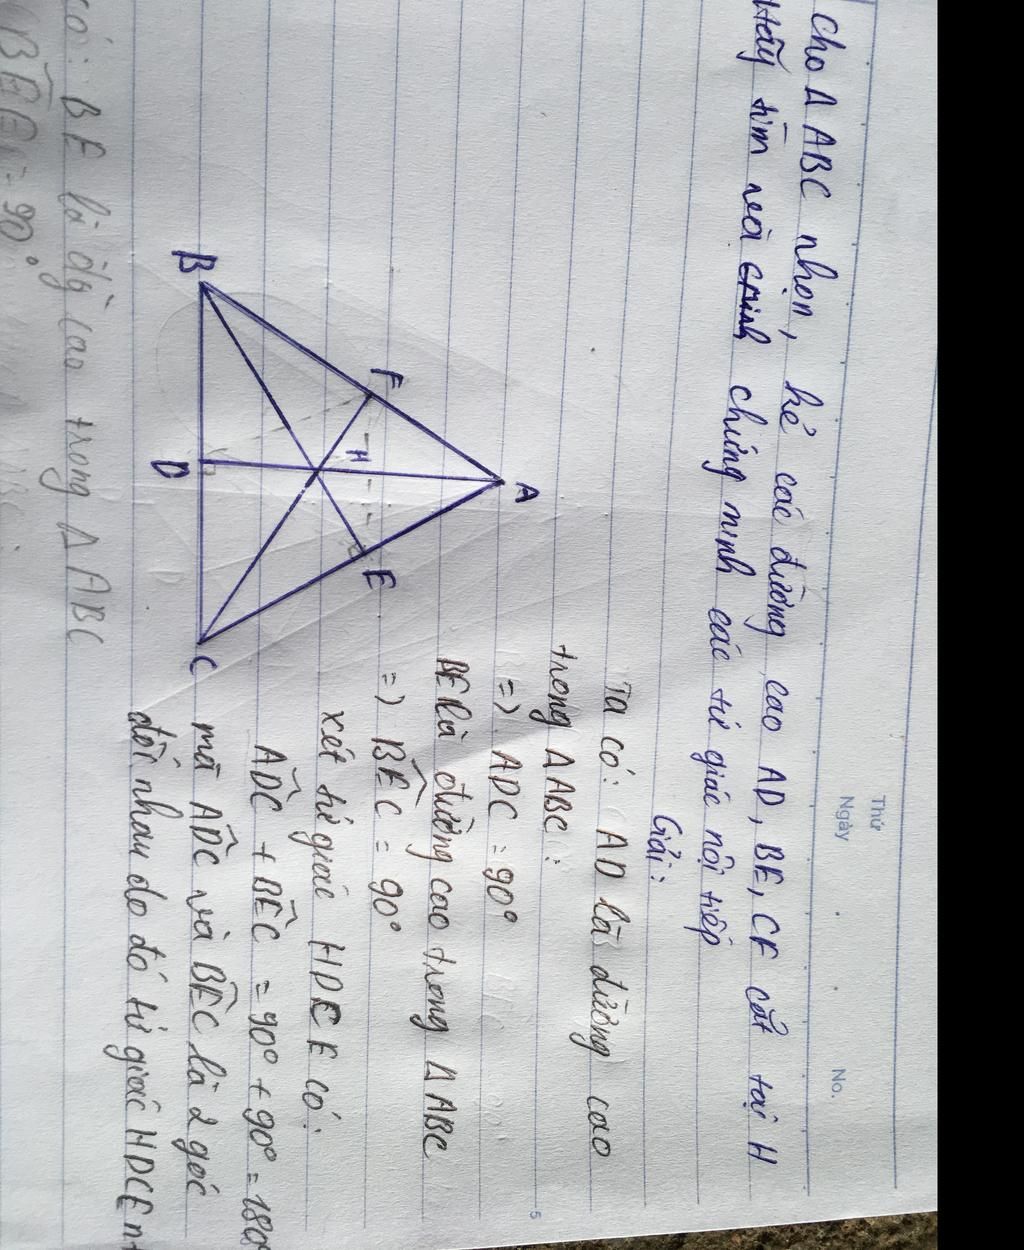 Thứ
Ngày No.
Cho Δ ABC nhọn, kẻ các đường cao AD, BE, CF cắt tại H
Hãy tìm và chứng minh các tứ giác nội tiếp
Giải:
Ta có: AD là đường cao
trong Δ ABC:
=) ADC = 90°
BE là đường cao trong Δ ABC
=) BÊC = 90°
xét tứ giác HDCE có:
ADC + BÊC = 90° + 90° = 180°
mà ADC và BÊC là 2 góc
đối nhau do đó tứ giác HDCE nt
A
F
E
H
B
D
C
5
có: BE là đg cao trong Δ ABC
= 90°